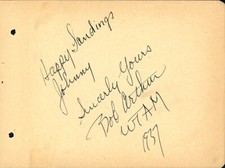 Happy Landings
Johnny
Sincerly Yours
Bob Arthur
WTAM
1937